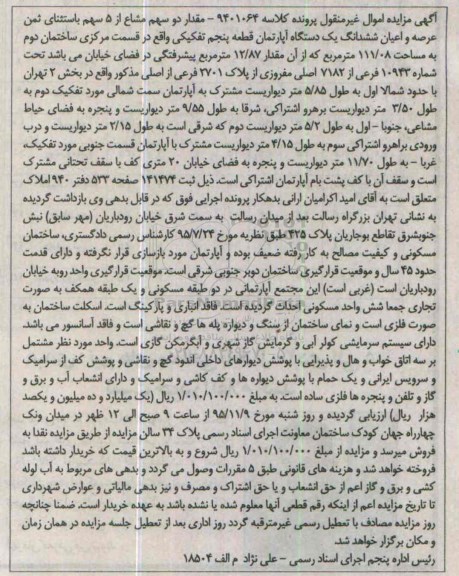 آگهی مزایده اموال غیرمنقول پرونده کلاسه ۹۴۰۱۰۶۴ - مقدار دو سهم مشاع از ۵ سهم باستثنای ثمن
عرصه و اعیان ششدانگ یک دستگاه آپارتمان قطعه پنجم تفکیکی واقع در قسمت مرکزی ساختمان دوم
به مساحت ۱۱۱/۰۸ مترمربع که از آن مقدار ۱۲/۸۷ مترمربع پیشرفتگی در فضای خیابان می باشد تحت
شماره ۱۰۹۴۳ فرعی از ۷۱۸۲ اصلی مفروزی از پلاک ۲۷۰۱ فرعی از اصلی مذکور واقع در بخش ۲ تهران
با حدود شمالا اول به طول ۵/۸۵ متر دیواریست مشترک به آپارتمان سمت شمالی مورد تفکیک دوم به
طول ۳/۵۰ متر دیواریست برهرو اشتراکی، شرقا به طول ۹/۵۵ متر دیواریست و پنجره به فضای حیاط
مشاعی، جنوبا - اول به طول ۵/۲ متر دیواریست دوم که شرقی است به طول ۲/۱۵ متر دیواریست و درب
ورودی براهرو اشتراکی سوم به طول ۴/۱۵ متر دیواریست مشترک با آپارتمان قسمت جنوبی مورد تفکیک،
غربا - به طول ۱۱/۷۰ متر دیواریست و پنجره به فضای خیابان ۲۰ متری کف با سقف تحتانی مشترک
است و سقف آن با کف پشت بام آپارتمان اشتراکی است. ذیل ثبت ۱۴۱۴۷۴ صفحه ۵۳۳ دفتر ۹۴۰ املاک
متعلق است به آقای امید اکرامیان ارانی بدهکار پرونده اجرایی فوق که در قابل بدهی وی بازداشت گردیده
به نشانی تهران بزرگراه رسالت بعد از میدان رسالت به سمت شرق خیابان رودباریان (مهر سابق) نبش
جنوبشرق تقاطع بوجاریان پلاک ۴۲۵ طبق نظریه مورخ ۹۵/۷/۲۴ کارشناس رسمی دادگستری، ساختمان
مسکونی و کیفیت مصالح به کار رفته ضعیف بوده و آپارتمان مورد بازسازی قرار نگرفته و دارای قدمت
حدود ۴۵ سال و موقعیت قرارگیری ساختمان دوبر جنوبی شرقی است. موقعیت قرارگیری واحد روبه خیابان
رودباریان است (غربی است) این مجتمع آپارتمانی در دو طبقه مسکونی و یک طبقه همکف به صورت
تجاری جمعا شش واحد مسکونی احداث گردیده است. فاقد انباری و پارکینگ است. اسکلت ساختمان به
صورت فلزی است و نمای ساختمان از سنگ و دیواره پله ها گچ و نقاشی است و فاقد آسانسور می باشد.
دارای سیستم سرمایشی کولر آبی و گرمایش گاز شهری و آبگرمکن گازی است. واحد مورد نظر مشتمل
بر سه اتاق خواب و هال و پذیرایی با پوشش دیوارهای داخلی اندود گچ و نقاشی و پوشش کف از سرامیک
و سرویس ایرانی و یک حمام با پوشش دیواره ها و کف کاشی و سرامیک و دارای انشعاب آب و برق و
گاز و تلفن و پنجره ها فلزی ساده است. به مبلغ ۱/۰۱۰/۱۰۰/۰۰۰ ریال (یک میلیارد و ده میلیون و یکصد
هزار ریال) ارزیابی گردیده و روز شنبه مورخ ۹۵/۱۱/۹ از ساعت ۹ صبح الی ۱۲ ظهر در میدان ونک
چهارراه جهان کودک ساختمان معاونت اجرای اسناد رسمی پلاک ۳۴ سالن مزایده از طریق مزایده نقدا به
فروش میرسد و مزایده از مبلغ ۱/۰۱۰/۱۰۰/۰۰۰ ریال شروع و به بالاترین قیمت که خریدار داشته باشد
فروخته خواهد شد و هزینه های قانونی طبق ۵ مقررات وصول می گردد و بدهی های مربوط به آب لوله
کشی و برق و گاز اعم از حق انشعاب و یا حق اشتراک و مصرف و نیز بدهی مالیاتی و عوارض شهرداری
تا تاریخ مزایده اعم از اینکه رقم قطعی آنها معلوم شده یا نشده باشد به عهده خریدار است. ضمنا چنانچه
روز مزایده مصادف با تعطیل رسمی غیرمترقبه گردد روز اداری بعد از تعطیل جلسه مزایده در همان زمان
و مکان برگزار خواهد شد.
رئیس اداره پنجم اجرای اسناد رسمی - علی نژاد م الف ۱۸۵۰۴